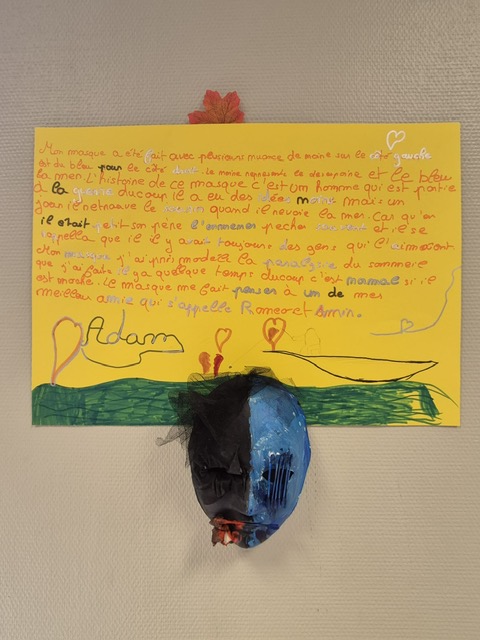 Mon masque a été fait avec plusieurs nuance de noire sur le côté gauche
est du bleu pour le côté droit. Le noire représente le désespoire et le bleu
la mer. L'histoire de ce masque c'est un homme qui est partie
à la guerre ducoup il a eu des idées mais un
jour il retrouve le quand il revoie la mer. Car qu'an
il était petit son père l'emmenes pecher et il se
rappella que il il y avait toujours des gens qui l'aimaient.
Mon masque j'ai pris modèle la paralysie du sommeil
que j'ai faite il y a quelque temps ducoup c'est normal si il
est moche. Le masque me fait penser à un de mes
meilleur amie qui s'appelle Romeo et Amin.
Adam